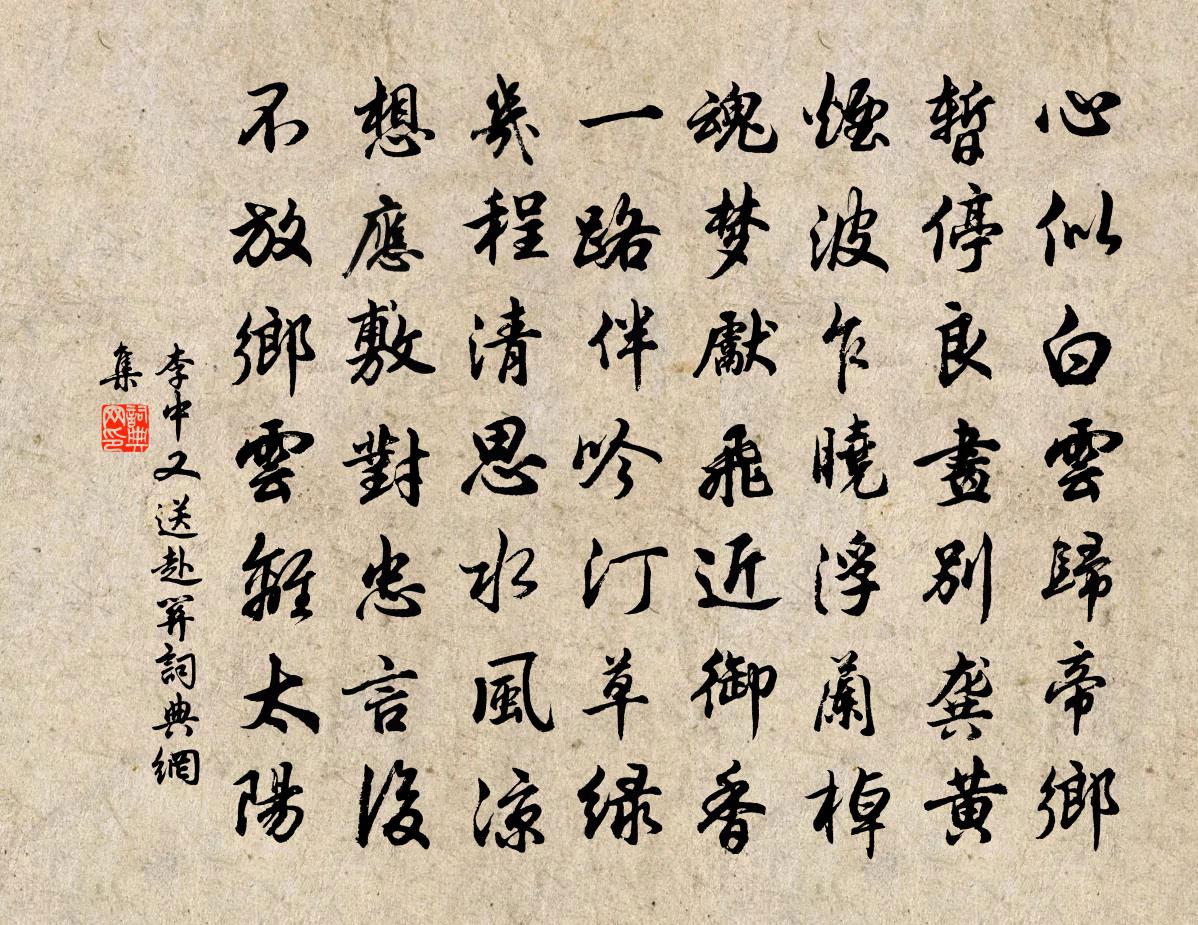 心似白雲歸帝鄉
暫停良畫別龔黃
煙波乍曉浮蘭棹
魂梦獻飛近御香
一路伴吟汀草綠
幾程清思水風涼
想應敷對忠言後
不放鄉雲離太陽
李中又送赴關詞典網
集
詞典网印